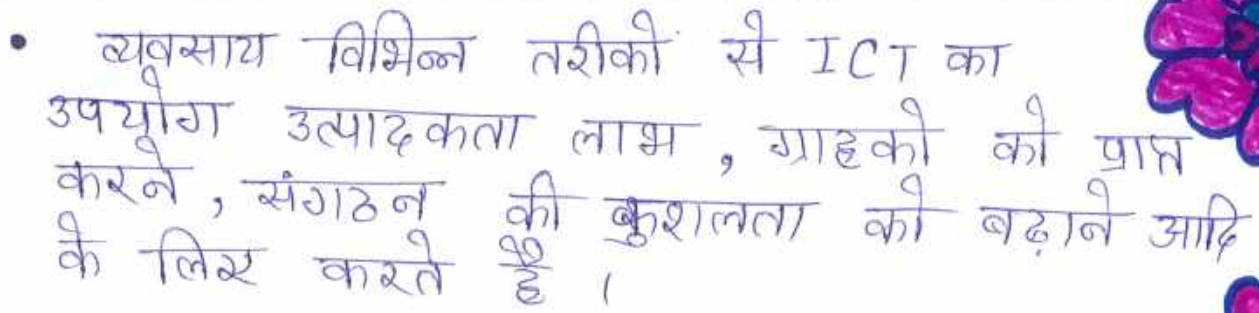 • व्यवसाय विभिन्न तरीको से ICT का
उपयोग उत्पादकता लाभ, ग्राहको को प्राप्त
करने, संगठन की कुशलता को बढ़ाने आदि
के लिए करते है ।